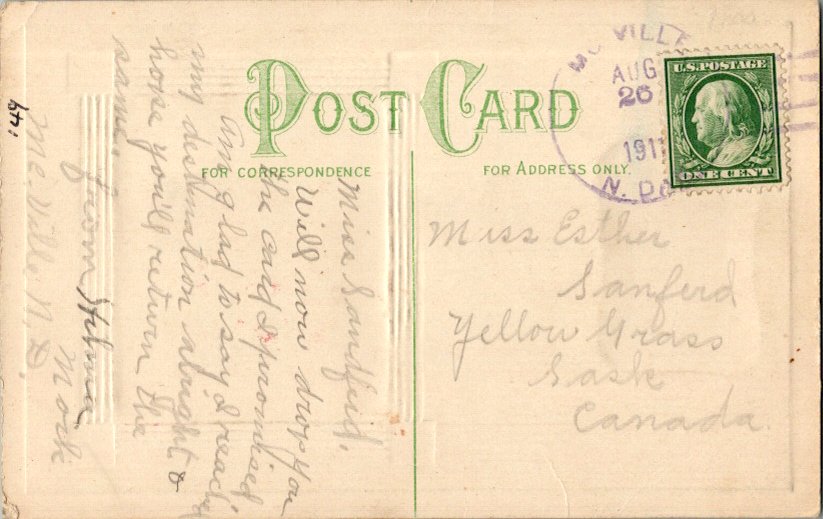 POST CARD
FOR CORRESPONDENCE
FOR ADDRESS ONLY.
MCVILLE
AUG
26
1911
N. DA
U.S. POSTAGE
ONE CENT
Miss Esther
Sanferd
Yellow Grass
Sask
Canada
Miss Sandferd,
Will now drop you
the card I promised
am glad to say I reach'd
my destination alright &
hope you'll return the
same.
from
Mork
Mc.Ville N.D.